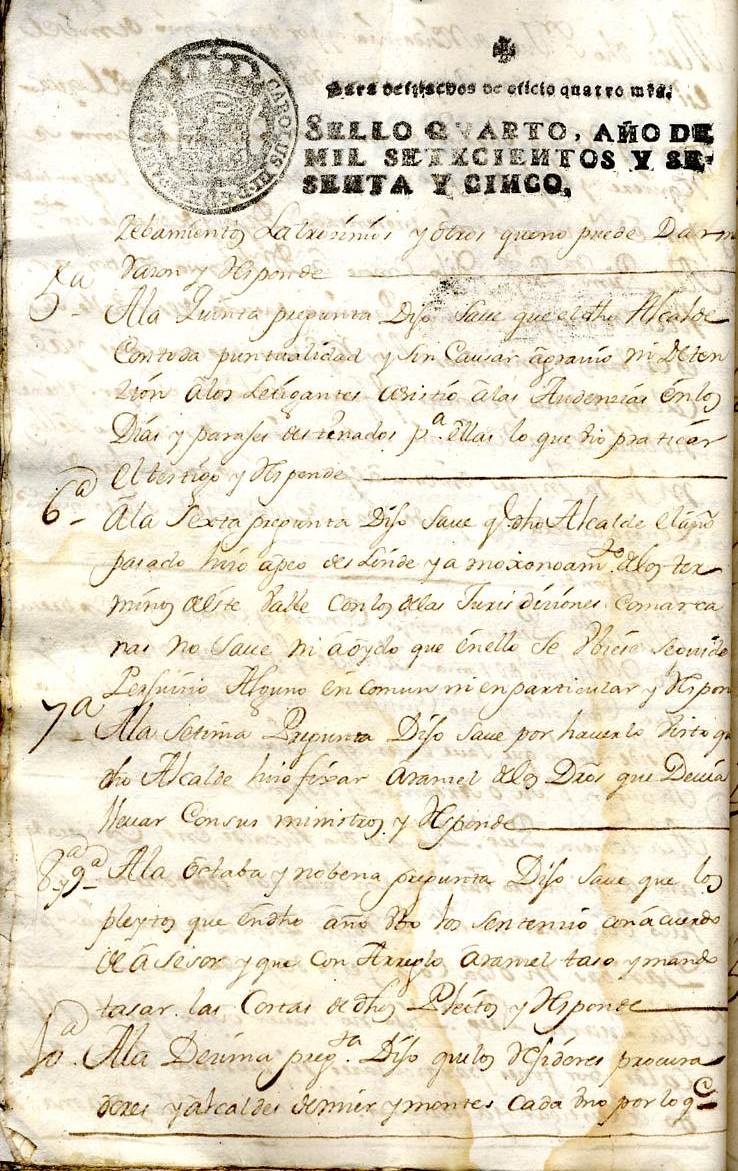 Para despachos de oficio quatro mrs.
SELLO QVARTO, AÑO DE
MIL SETECIENTOS Y SE-
SENTA Y CINCO,
CAROLUS III
y otros que no puede Dar
Razon y Responde
5ª
Ala Quinta pregunta Dijo Save que el dho Alcalde
Contoda puntualidad y sin Causar agravio ni deten
zion alos Letigantes asistió alas Audenzias enlos
Dias y parajes destenados pª. ellas lo que vio praticar
el testigo y Responde
6ª
Ala Sexta pregunta Dijo Save q dho Alcalde el año
pasado hizo apeo deslinde y amoxonoamto. alos ter
minos deste Valle Conlos delas Jurisdiziones Comarca
nas no Save ni a oydo que enello se Ubiese seguido
Persuizio Alguno en comun ni en particular y Respon
7ª
Ala Setima Pregunta Dijo Save por haverlo visto q
dho Alcalde hizo fixar Aramel delos Dros que Devia
llevar Consus ministros y Responde
8ª y 9ª
Ala Octaba y nobena pregunta Dijo Save que los
pleytos que endho año los sentenzio con acuerdo
de asesor y que con Arreglo Aramel taso y mando
tasar las Costas de dhos Pleitos y Responde
10ª
Ala Dezima pregta. Dijo quelos Rejidores procura
dores y alcaldes demier y montes Cada Uno por lo qe